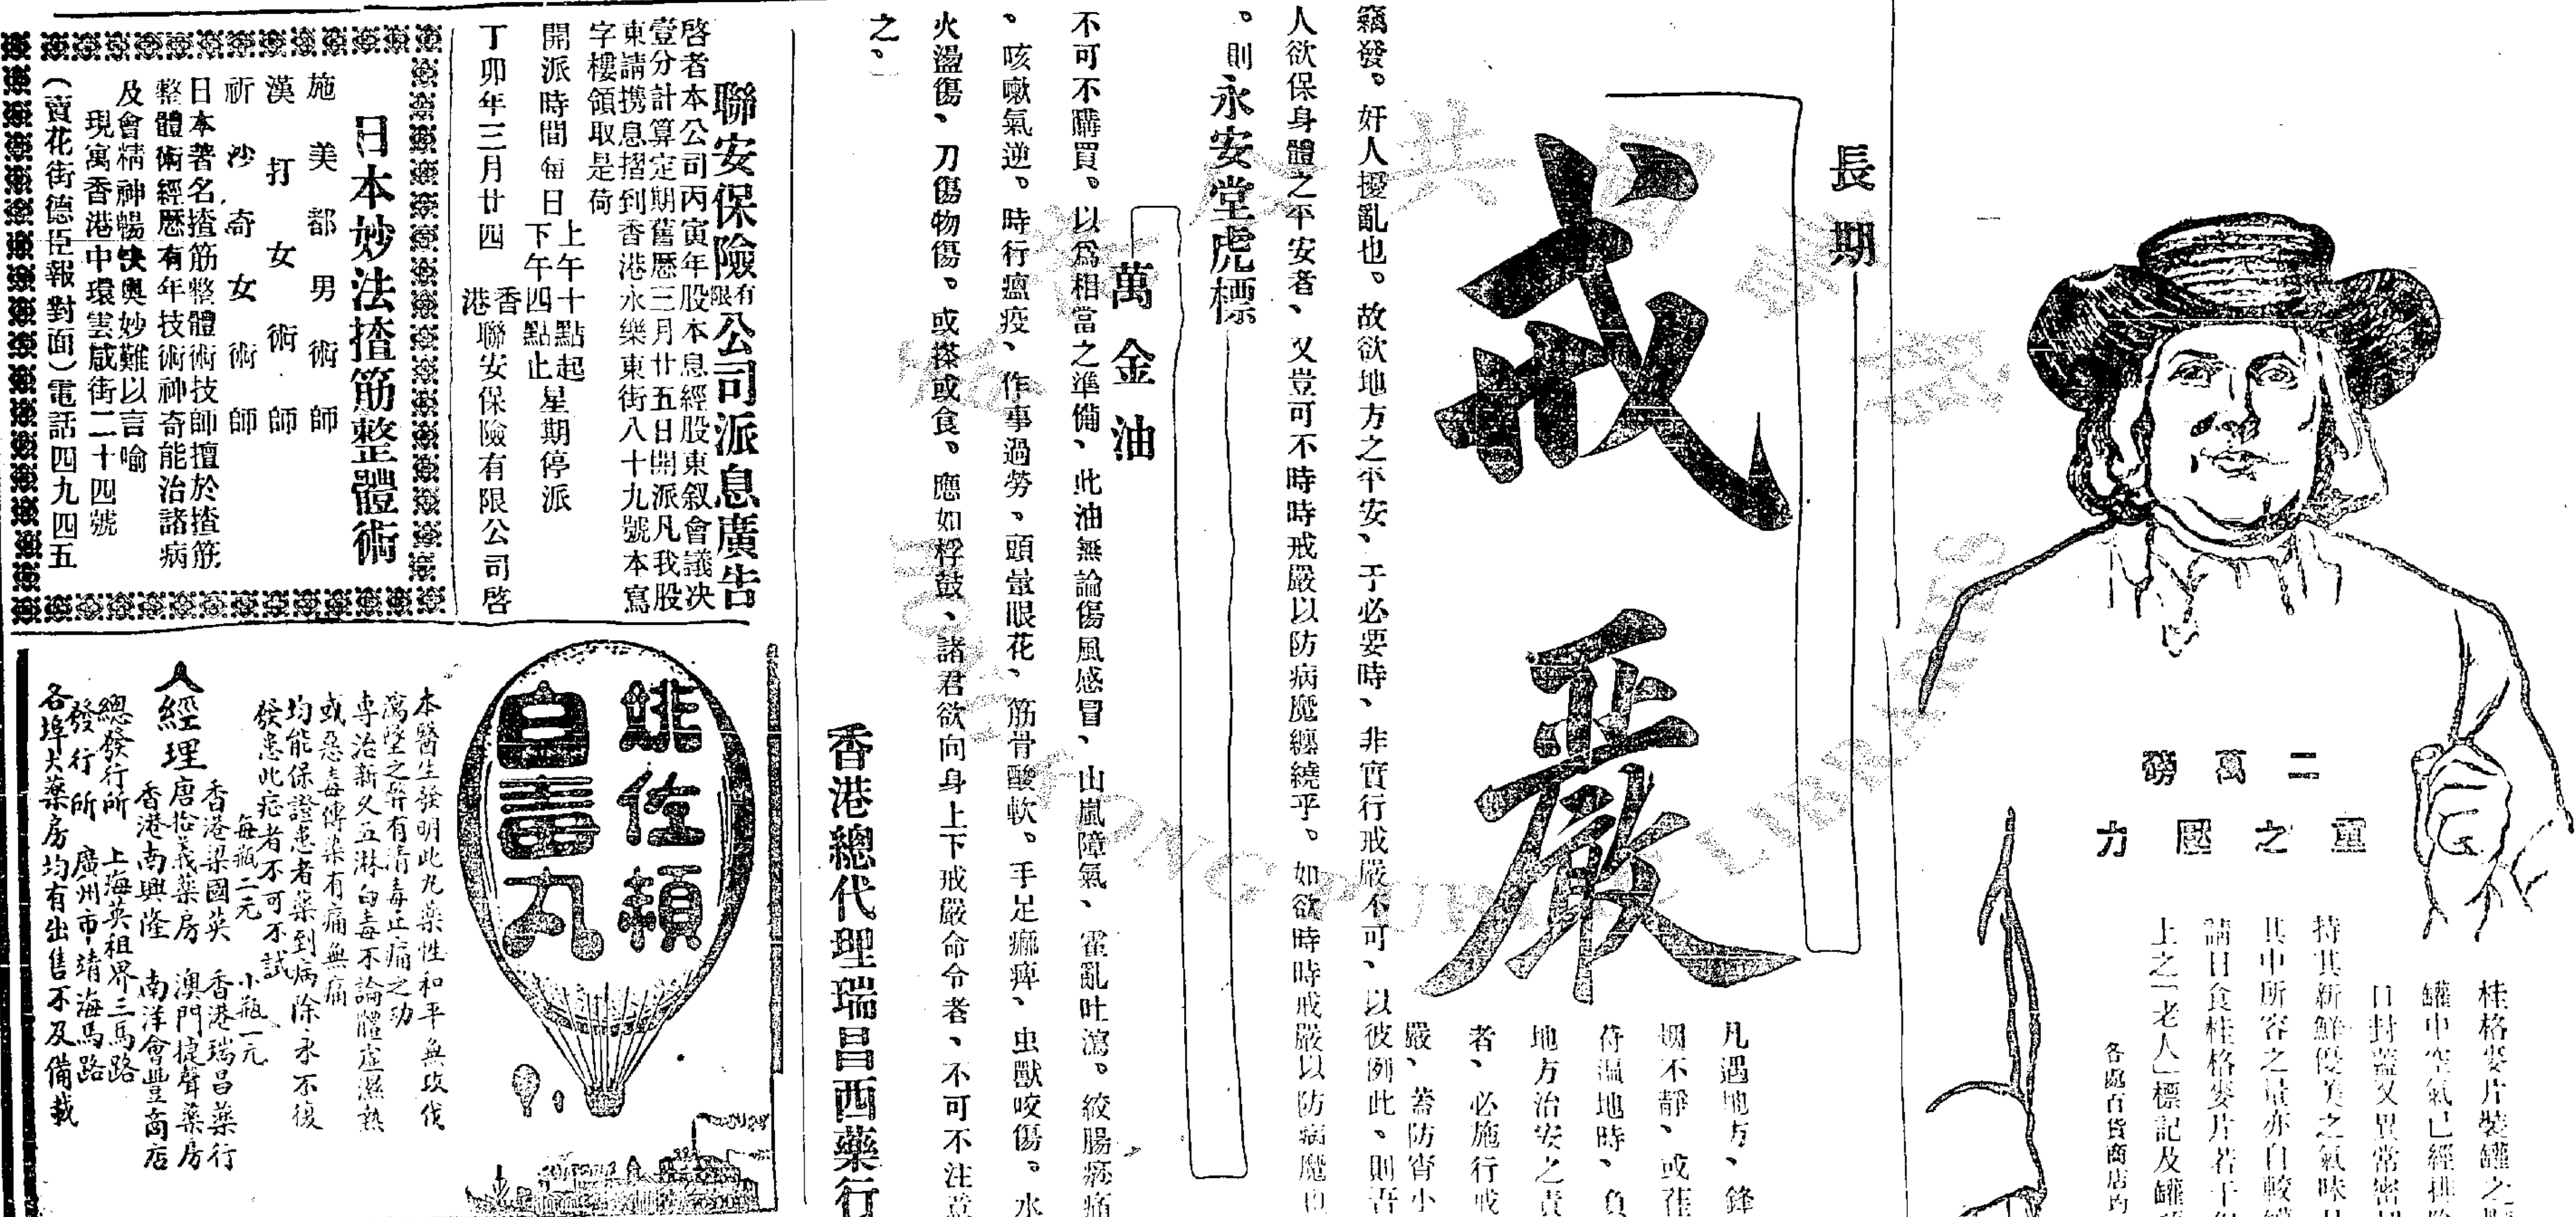 二萬磅
重之壓力
桂格麥片裝罐之
罐中空氣已經排
口封蓋又異常密
持其新鮮優美之氣味
其中所容之量亦自較
請日食桂格麥片若干
上之「老人」標記及罐
各處百貨商店均
長期
戒嚴
凡遇地方、鋒
烟不靜、或在
荷溫地時、負
地方治安之責
者、必施行戒
嚴、蓋防宵小
竊發。奸人擾亂也。故欲地方之平安、于必要時、非實行戒嚴不可、以彼例此、則吾
人欲保身體之平安者、又豈可不時時戒嚴以防病魔纏繞乎。如欲時時戒嚴以防病魔也
。則永安堂虎標
萬金油
不可不購買。以爲相當之準備、此油無論傷風感冒、山嵐障氣、霍亂吐瀉。絞腸痧痛
、咳嗽氣逆。時行瘟疫、作事過勞、頭暈眼花、筋骨酸軟。手足痲痺、虫獸咬傷。水
火盪傷、刀傷物傷。或搽或食。應如桴鼓、諸君欲向身上下戒嚴命令者、不可不注意
之。
香港總代理瑞昌西藥行
聯安保險有限公司派息廣告
啓者本公司丙寅年股本息經股東叙會議决
壹分計算定期舊歷三月廿五日開派凡我股
東請携息摺到香港永樂東街八十九號本寫
字樓領取是荷
開派時間每日上午十點起下午四點止星期停派
丁卯年三月廿四 香港聯安保險有限公司啓
日本妙法揸筋整體術
施美都男術師
漢打女術師
祈沙奇女術師
日本著名揸筋整體術技師擅於揸筋
整體術經歷有年技術神奇能治諸病
及會精神暢快奧妙難以言喻
現寓香港中環雲咸街二十四號
(賣花街德臣報對面)電話四九四五
姚佐頓
白濁丸
本醫生發明此丸藥性和平無攻伐
瀉墜之弊有清毒止痛之功
專治新久五淋白毒不論體虛濕熱
或惡毒傳染有痛無痛
均能保證患者藥到病除永不復
發患此症者不可不試
每瓶二元 小瓶一元
香港梁國英 香港瑞昌藥行
經理人 唐拾義藥房 澳門捷聲藥房
香港南興隆 南洋會豐商店
總發行所 上海英租界三馬路
發行所 廣州市靖海馬路
各埠大藥房均有出售不及備載
HONG KONG PUBLIC LIBRARIES